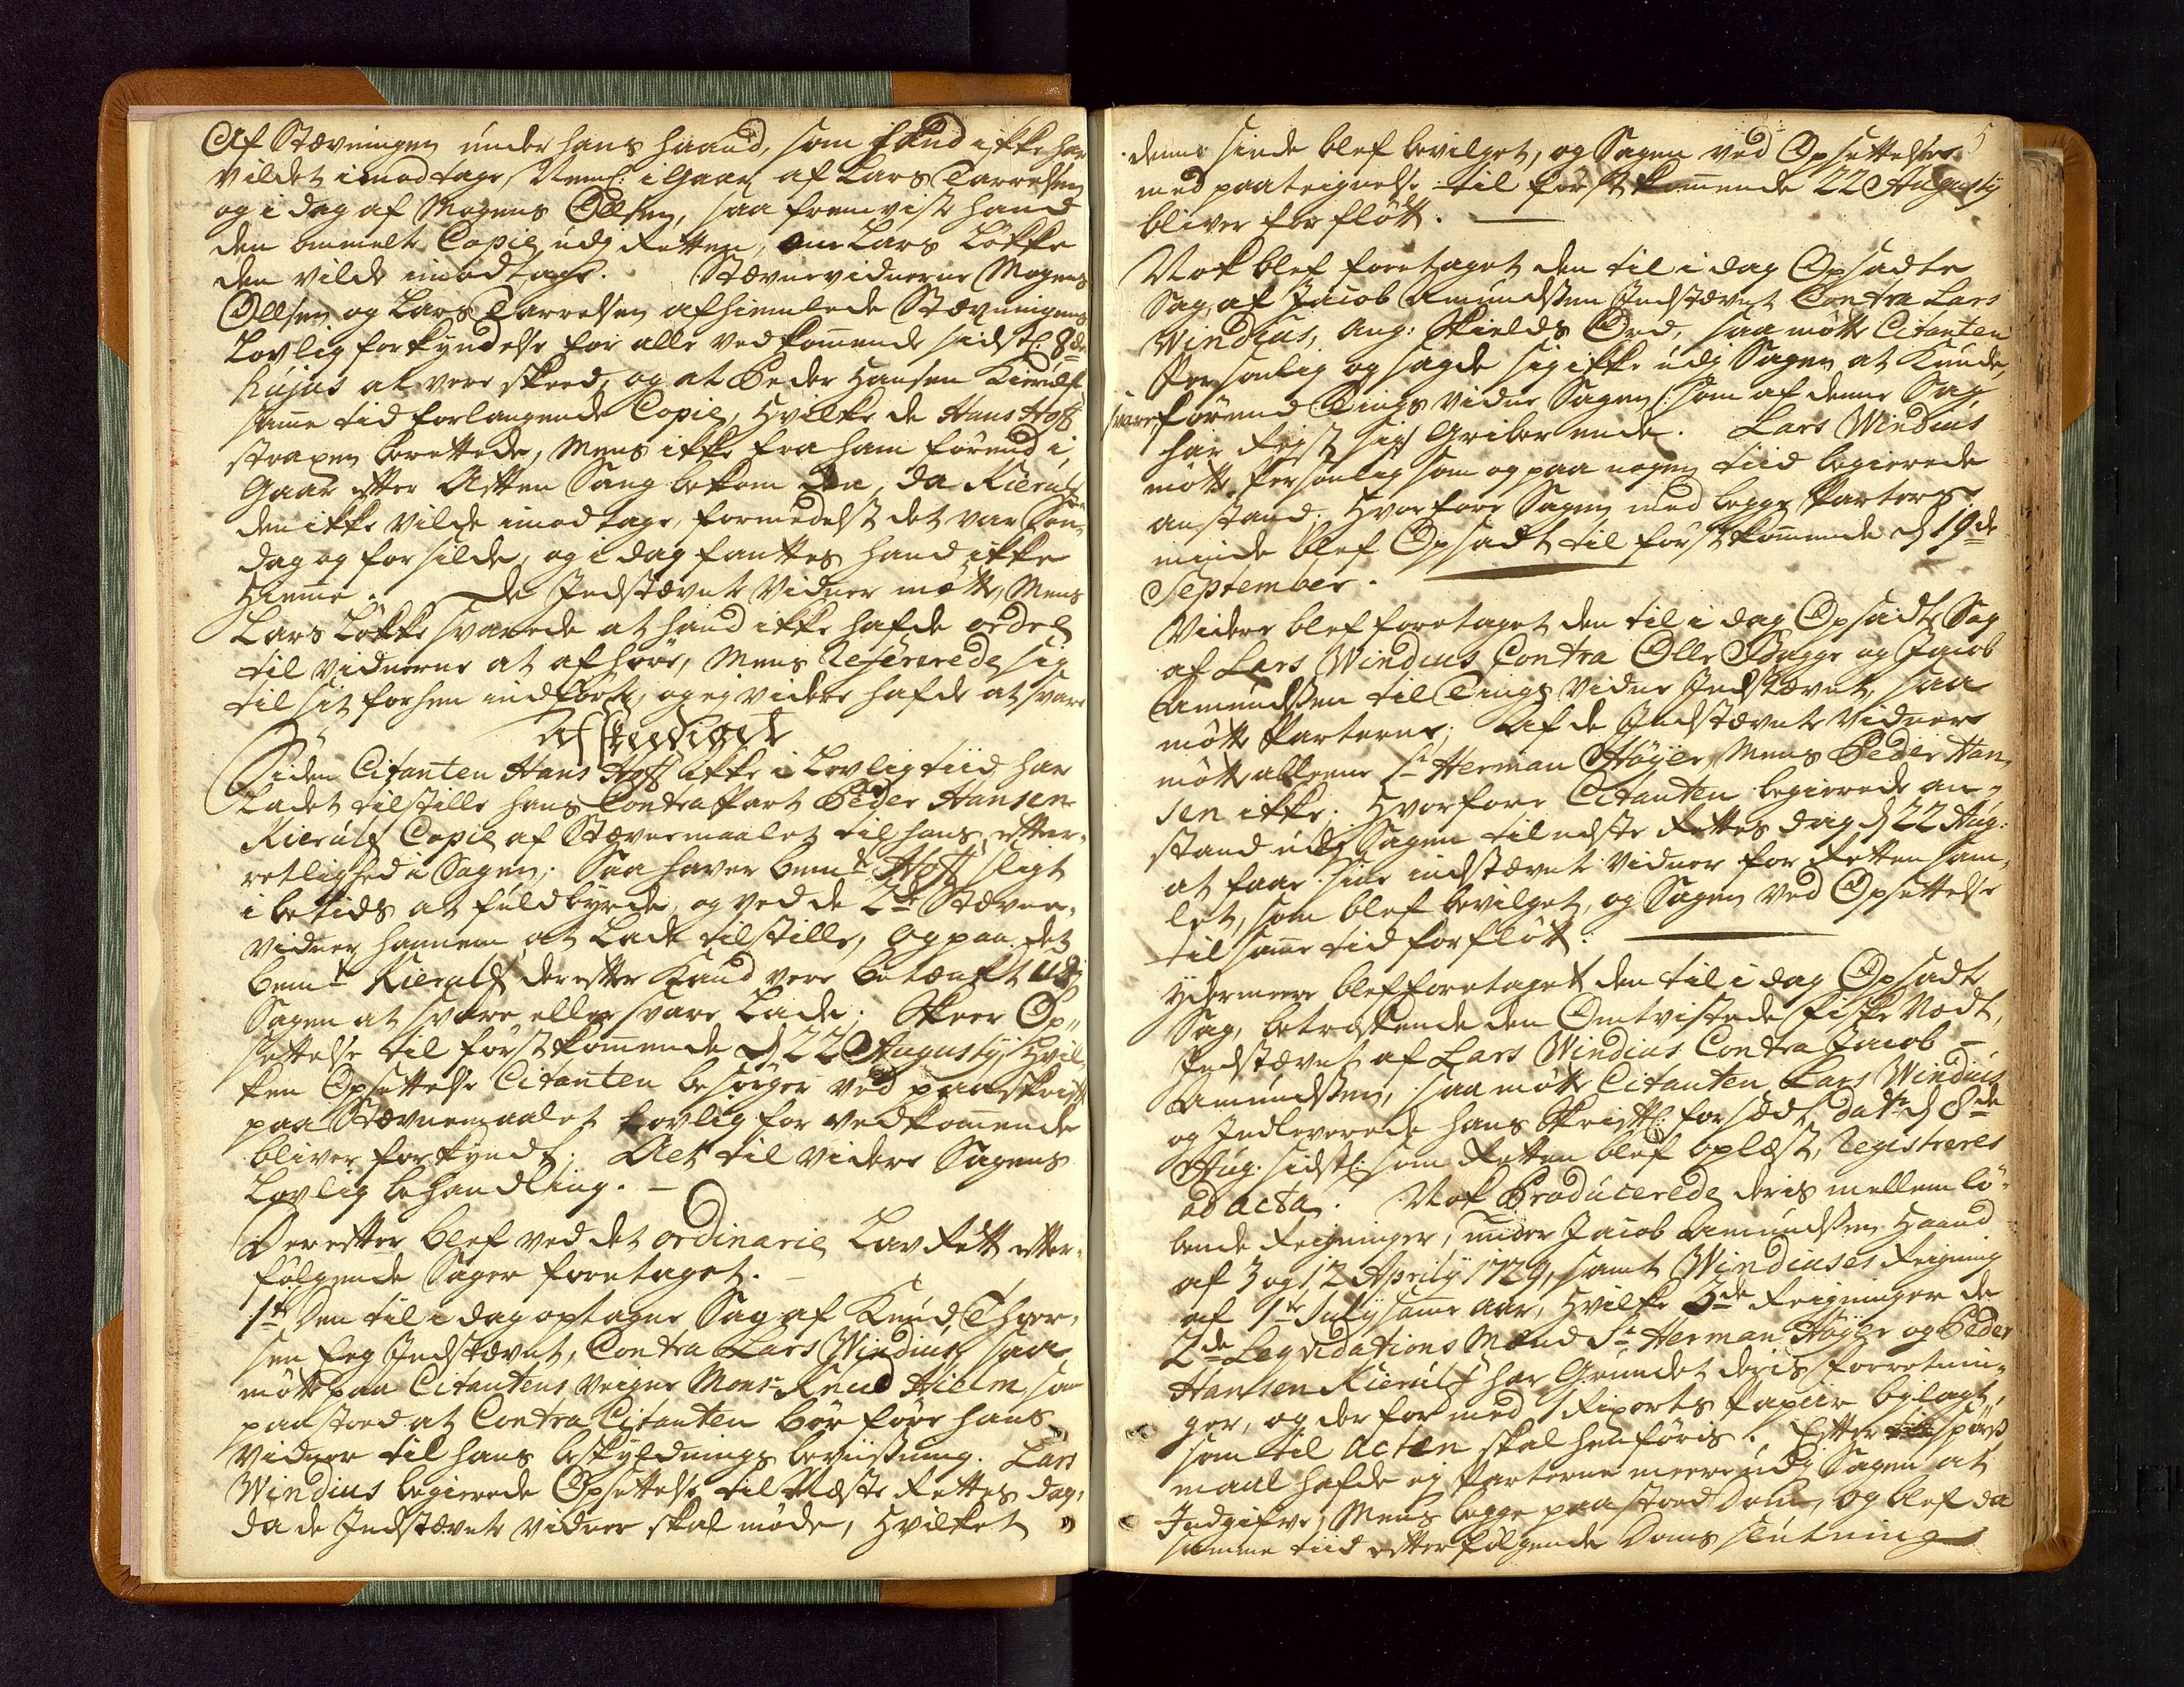 Af Stævningen under hans haand, som hand ikke har
vildet imodtage, Neml: i Gaar af Lars Tarresen
og i dag af Mogens Ollsen, saa fremviste hand
den ommelte Copie udj Retten, om Lars Løkke
den vilde imodtage. Stævnevidnerne Mogens
Ollsen og Lars Tarresen afhiemlede Stævningens
Lovlig forkyndelse for alle vedkommende sidstl: 8de
hujus at vere skeed, og at Peder Hansen Kierulf
samme tid forlangende Copie, hvilke de Hans Hoff
straxen berettede, Mens ikke fra ham førend i
Gaar efter Aften Sang bekom den, da Kierulf
den ikke vilde imodtage, formedelst det var Søn-
dag og for silde, og i dag fantes hand ikke
hiemme. De Indstævnte Vidner møtte, Mens
Lars Løkke svarede at hand ikke hafde ordre
til vidnerne at afhøre, Mens Refererede sig
til sit forhen indførte, og ej videre hafde at svare
Afskeediget
Siden Citanten Hans Hoff ikke i Lovlig tiid har
Ladet tilstille hans Contrapart Peder Hansen
Kierulf Copie af Stævnemaalet til hans efter-
retlighed i Sagen; Saa haver bemte Hoff sligt
i betids at fuldbyrde, og ved de 2de Stævne-
vidner hannem at Lade tilstille, og paa det
bemte Kierulf derefter kand vere betænkt udj
Sagen at svare eller svare Lade. Skeer Op-
settelse til førstkommende d 22 Augustij, hvil-
ken Opsettelse Citanten besørger ved paaskrift
paa Stævnemaalet Lovlig for vedkommende
bliver forkyndt. Alt til videre Sagens
Lovlig behandling. -
Derefter blef ved det ordinarie Lav Rett efter-
følgende Sager foretaget. -
1te Den til i dag optagne Sag af Knud Thor-
sen Eeg Indstævnt, Contra Lars Windius, saa
møtte paa Citantens veigne Monsr Knud Hielm som
paastoed at Contra Citanten bør føre hans
Vidner til hans beskyldnings beviisning. Lars
Windius begierede Opsettelse til Næste Rettes dag,
da de Indstævnte vidner skal møde, hvilket
5
denne sinde blef bevilget, og Sagen ved Opsettelse
med paateignelse til førstkommende 22 Augustij
bliver forfløtt.
Nok blef foretaget den til i dag Opsadte
Sag, af Jacob Amundssen Indstævnt Contra Lars
Windius, ang: Skields Ord, saa møtte Citanten
Personlig og sagde sig ikke udj Sagen at kunde
svare førend Tings vidne Sagen /: som af denne Sag
har Rejst sig :/ bliver ende. Lars Windius
møtte Personlig som og paa nogen tiid begierede
anstand; Hvorfore Sagen med begge Parters
minde blef Opsadt til førstkommende d 19de
September.
Videre blef foretaget den til i dag Opsadte Sag
af Lars Windius Contra Olle Bagge og Jacob
Amundssen til Tings Vidne Indstævnt, saa
møtte Parterne; Af de Indstævnte Vidner
møtte alleene Sr Herman Høyer, Mens Peder Han-
sen ikke; Hvorfore Citanten begierede an-
stand udj Sagen til neste Rettes dag d 22 Aug:
at faae sine indstævnte Vidner for Retten sam-
let, som blef bevilget, og Sagen ved Opsettelse
til samme tid forfløtt.
Ydermeere blef foretaget den til i dag Opsadte
Sag, betræffende den Omtvistede Fiske Nodt,
Indstævnt af Lars Windius Contra Jacob
Amundssen, saa møtte Citanten Lars Windius
og Indleverede hans Skriftl: forsæt, datr d 8de
Aug: sidstl: som Retten blef oplæst, Registreres
ad acta. Nok Producerede deris mellem lø-
bende Reigninger, under Jacob Amundssens Haand
af 3 og 12 Aprily 1729, samt Windiuses Reigning
af 1te July samme aar, Hvilke 3de Reigninger de
2de Leqvidations Mænd Sr Herman Høyer og Peder
Hansen Kierulf har Grundet deris forretnin-
ger, og derfor med Riports Papiir bilagt,
som til Acten skal henføris. Efter spørs-
maal hafde ej Parterne meere udj Sagen at
Indgifve, Mens begge paastoed Dom, og blef da
samme tiid efterfølgende Doms slutning